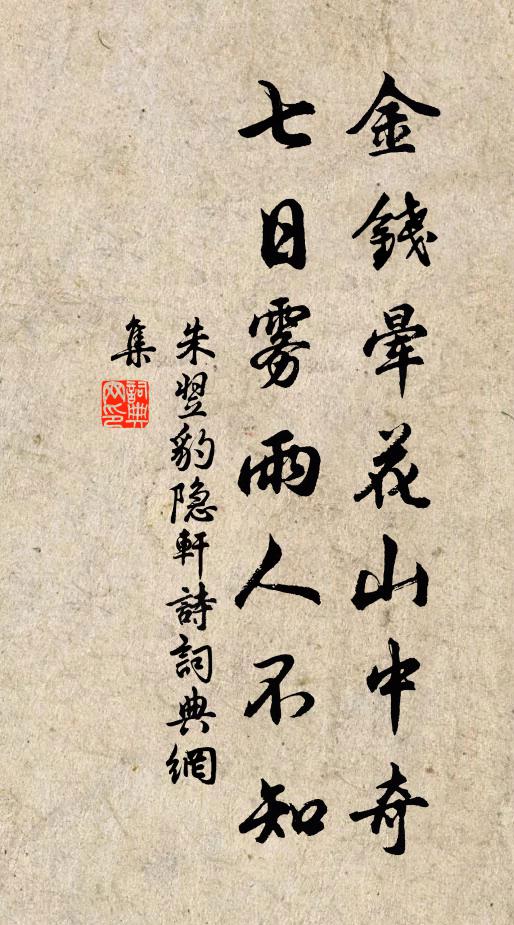 金錢暈花山中奇
七日雾雨人不知
朱翌豹隐軒詩詞典網
集
詞典
网印